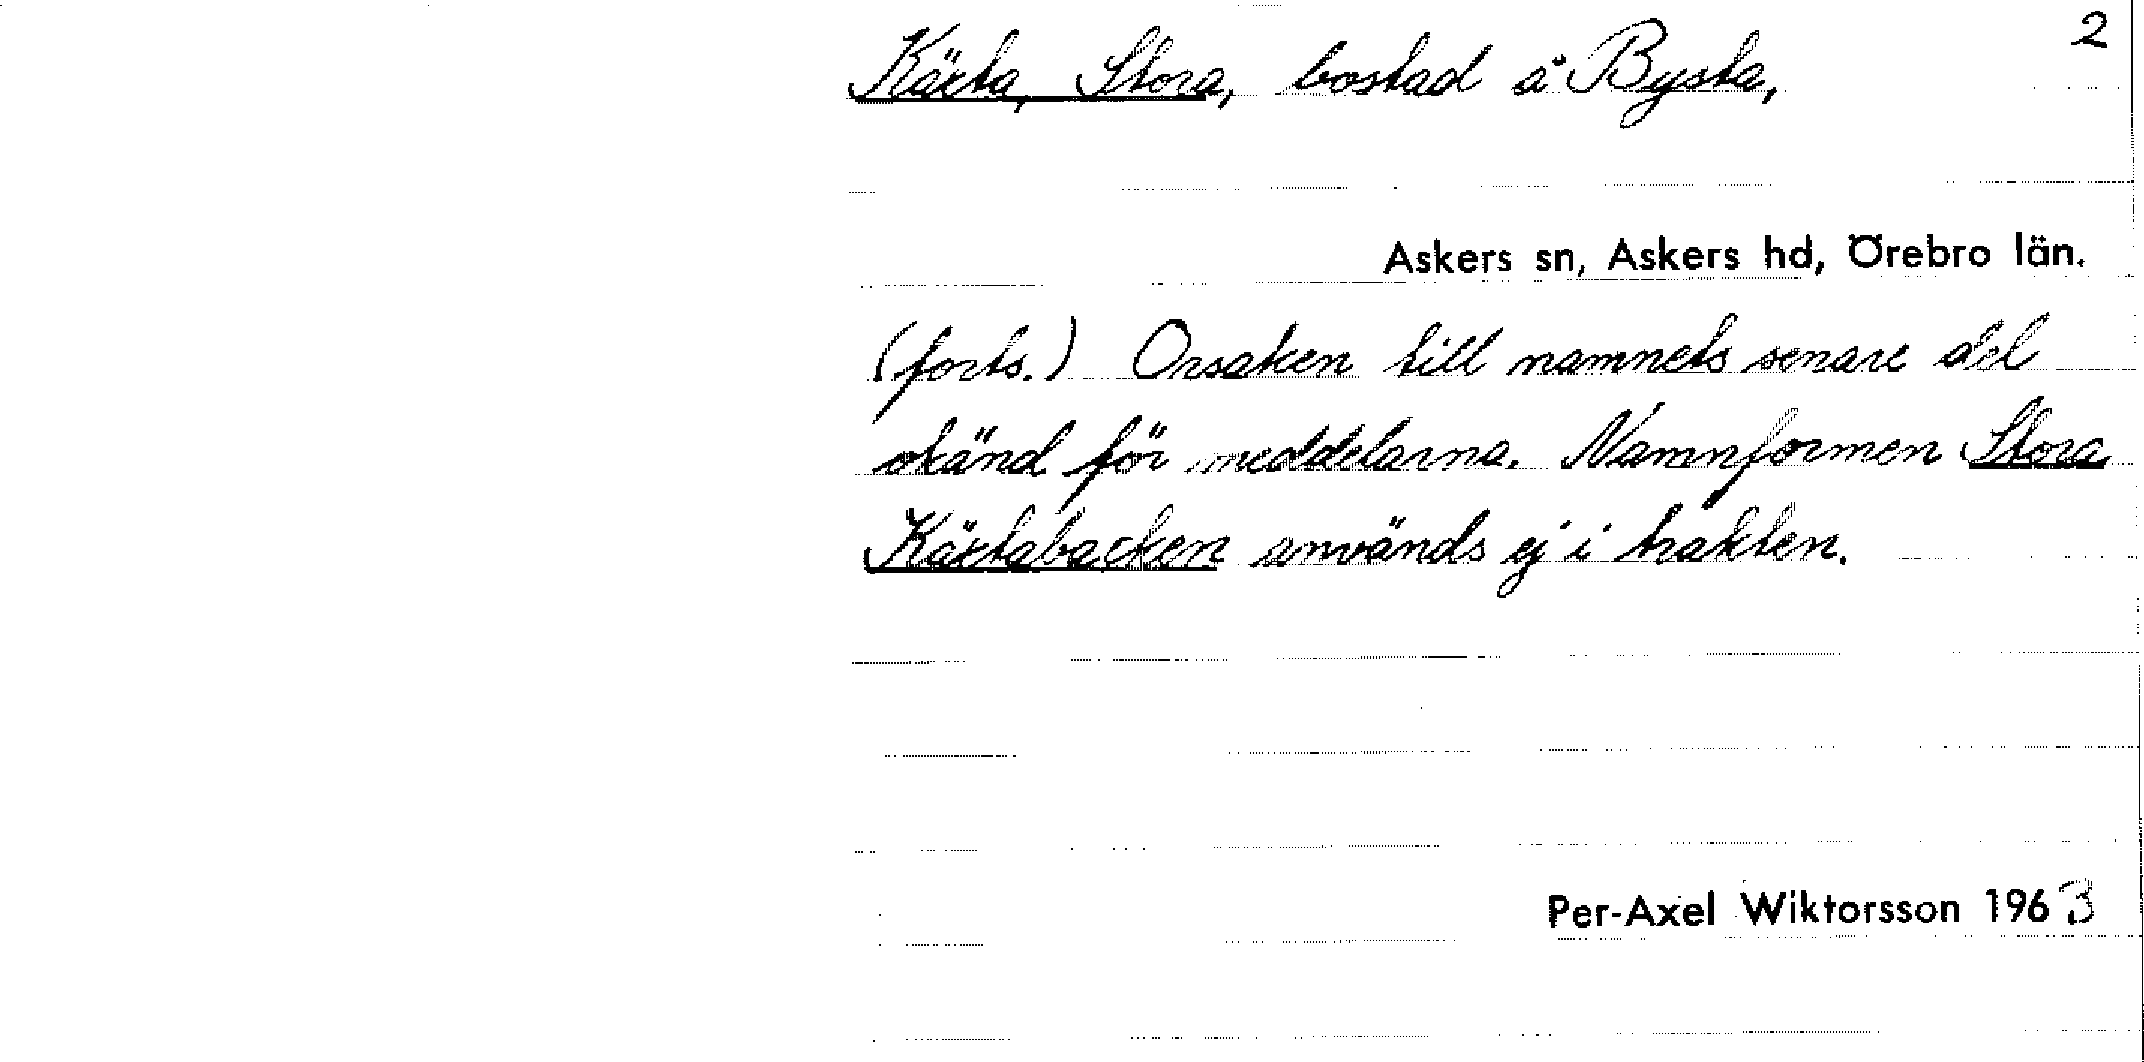 2
Käxta, Stora, bostad å Bysta,
Askers sn, Askers hd, Örebro län.
(forts.) Orsaken till namnets senare del
okänd för meddelarna. Namnformen Stora
Käxtabacken används ej i trakten.
Per-Axel Wiktorsson 1963